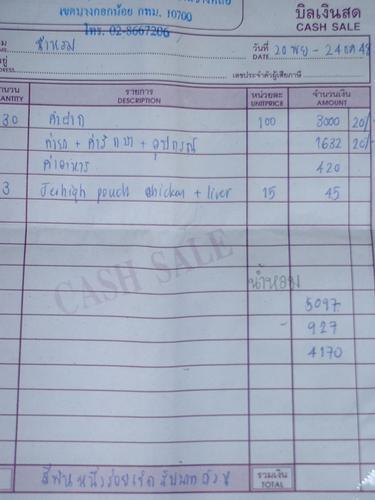 เขตบางกอกน้อย กทม. 10700
โทร. 02-8667206
บิลเงินสด
CASH SALE
น้ำหอม
วันที่ 20 พย - 24 ธค 48
DATE
เลขประจำตัวผู้เสียภาษี
รายการ หน่วยละ จำนวนเงิน
DESCRIPTION UNITPRICE AMOUNT
30 ค่าฝาก 100 3000 20/-
ค่ายา + ค่ารักษา + อุปกรณ์ 1632 20/-
ค่าอาหาร 420
3 Jerhigh pouch chicken + liver 15 45
CASH SALE
น้ำหอม
5097
- 927
4170
สี่พันหนึ่งร้อยเจ็ดสิบบาทถ้วน
รวมเงิน
TOTAL